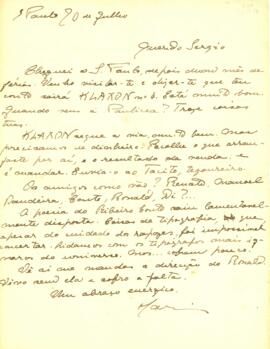 S. Paulo, 20 de Julho
Querido Sergio
Cheguei a S. Paulo, depois dum mês de
férias. Venho visitar-te e dizer-te que tão
pronto sairá KLAXON nº 3. Está muito bom.
Quando vens a Paulicea? Traze coisas
tuas.
KLAXON segue a via, muito bem. Mas
precisamos de dinheiro. Recolhe o que arran-
jaste por aí, e o resultado da venda e
é mandar. Envia-o ao Tacito, tesoureiro.
Os amigos como vão? Renato, Manuel
Bandeira, Couto, Ronald, Di?...
A poesia do Ribeiro Couto saiu lamentavel-
mente disposta. Coisas de tipografia que
apesar do cuidado dos rapazes, foi impossivel
concertar. Lidamos com os tipografos mais igna-
ros do universo. Mas... cobram pouco.
Vê aí que mandas a direcção do Ronald.
Vivo sem ela e sofro a falta.
Um abraço energico.
Mario